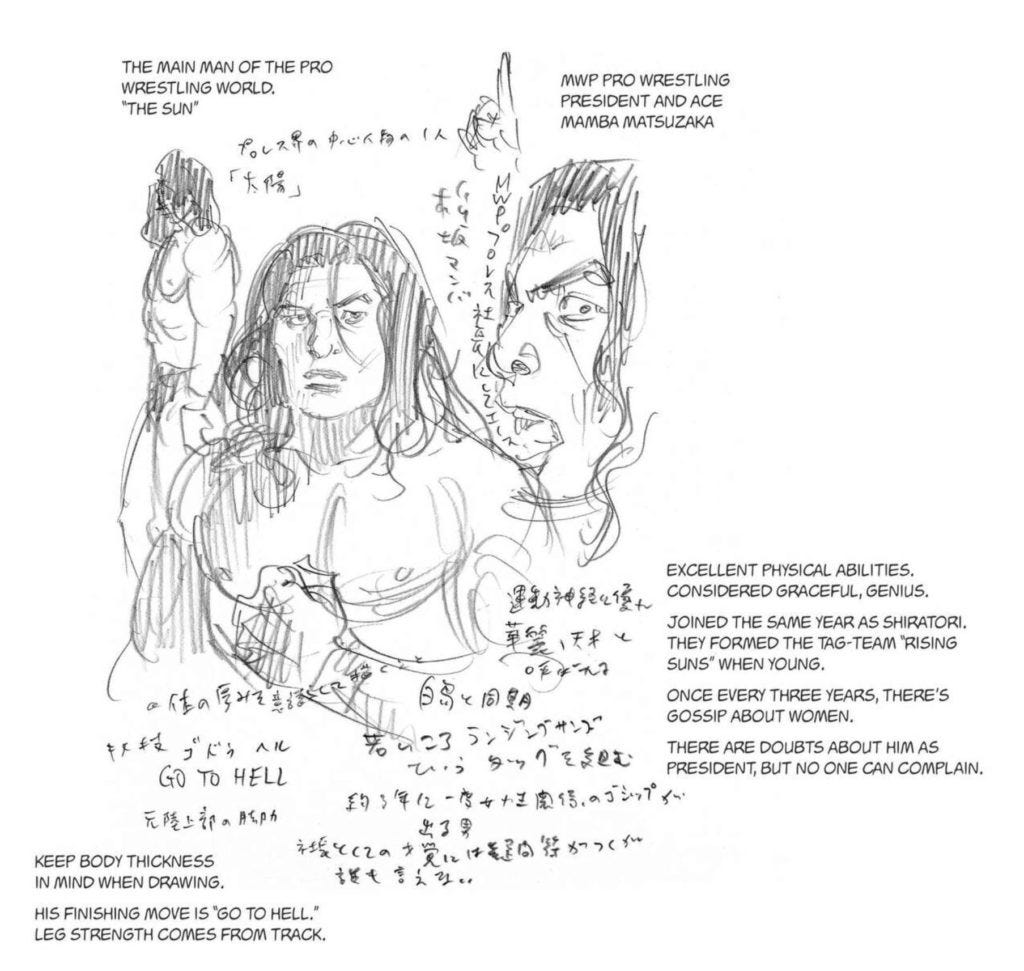 THE MAIN MAN OF THE PRO
WRESTLING WORLD.
"THE SUN"
MWP PRO WRESTLING
PRESIDENT AND ACE
MAMBA MATSUZAKA
プロレス界の中心人物の1人
「太陽」
MWPプロレス社長にしてエース
松坂マンバ
EXCELLENT PHYSICAL ABILITIES.
CONSIDERED GRACEFUL, GENIUS.
JOINED THE SAME YEAR AS SHIRATORI.
THEY FORMED THE TAG-TEAM "RISING
SUNS" WHEN YOUNG.
ONCE EVERY THREE YEARS, THERE'S
GOSSIP ABOUT WOMEN.
THERE ARE DOUBTS ABOUT HIM AS
PRESIDENT, BUT NO ONE CAN COMPLAIN.
運動神経に優れ
華麗、天才と
呼ばれる
白鳥と同期
若いころ ランジングサンズ
という タッグを組む
約3年に一度女性関係のゴシップが
出る男
社長としての才覚には疑問符がつくが
誰も言えない
体の厚みを意識して描くこと
キメ技 ゴトゥヘル
GO TO HELL
元陸上部の脚力
KEEP BODY THICKNESS
IN MIND WHEN DRAWING.
HIS FINISHING MOVE IS "GO TO HELL."
LEG STRENGTH COMES FROM TRACK.